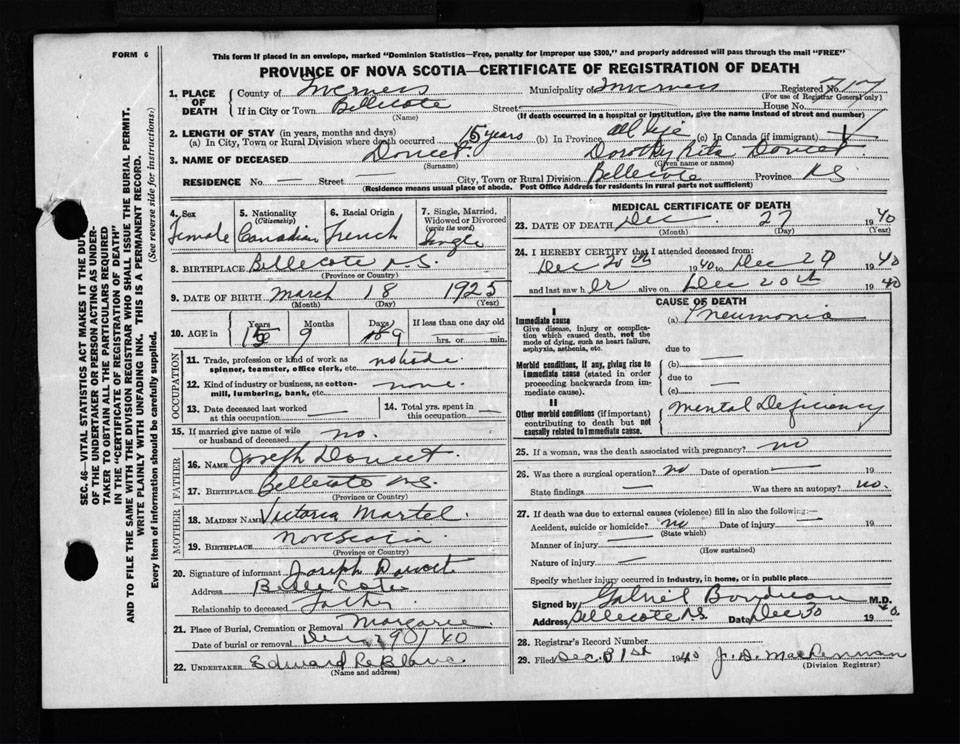 FORM 6
This form if placed in an envelope, marked "Dominion Statistics—Free, penalty for improper use $300," and properly addressed will pass through the mail "FREE"
PROVINCE OF NOVA SCOTIA—CERTIFICATE OF REGISTRATION OF DEATH
1. PLACE OF DEATH
County of Inverness Municipality of Inverness Registered No.
(For use of Registrar General only)
If in City or Town Bellecote Street House No.
(Name) (If death occurred in a hospital or institution, give the name instead of street and number)
2. LENGTH OF STAY (in years, months and days)
(a) In City, Town or Rural Division where death occurred 15 years (b) In Province all life (c) In Canada (if immigrant)
3. NAME OF DECEASED Doucet Dorothy Rita Doucet
(Surname) (Given name or names)
RESIDENCE No. — Street City, Town or Rural Division Bellecote Province N.S.
(Residence means usual place of abode. Post Office Address for residents in rural parts not sufficient)
4. Sex Female
5. Nationality (Citizenship) Canadian
6. Racial Origin French
7. Single, Married, Widowed or Divorced (write the word) Single
8. BIRTHPLACE Bellecote N.S.
(Province or Country)
9. DATE OF BIRTH March 18 1925
(Month) (Day) (Year)
10. AGE in Years 15 Months 9 Days 9 If less than one day old hrs. or min.
OCCUPATION
11. Trade, profession or kind of work as spinner, teamster, office clerk, etc.
12. Kind of industry or business, as cotton-mill, lumbering, bank, etc. none
13. Date deceased last worked at this occupation —
14. Total yrs. spent in this occupation —
15. If married give name of wife or husband of deceased no.
FATHER
16. NAME Joseph Doucet
17. BIRTHPLACE Bellecote N.S.
(Province or Country)
MOTHER
18. MAIDEN NAME Victoria Martel
19. BIRTHPLACE Nova Scotia
(Province or Country)
20. Signature of informant Joseph Doucet
Address Belle Cote
Relationship to deceased Father
21. Place of Burial, Cremation or Removal Margaree
Date of burial or removal Dec 40
22. UNDERTAKER Edward LeBlanc
(Name and address)
MEDICAL CERTIFICATE OF DEATH
23. DATE OF DEATH Dec 27 1940
(Month) (Day) (Year)
24. I HEREBY CERTIFY that I attended deceased from:
Dec 20th 1940 to Dec 1940
and last saw her alive on Dec 20th 1940
CAUSE OF DEATH
I
Immediate cause (a) Pneumonia
Give disease, injury or complication which caused death, not the mode of dying, such as heart failure, asphyxia, asthenia, etc.
due to —
Morbid conditions, if any, giving rise to immediate cause (stated in order proceeding backwards from immediate cause).
(b)
due to —
(c)
II
Other morbid conditions (if important) contributing to death but not causally related to immediate cause.
Mental Deficiency
25. If a woman, was the death associated with pregnancy? no
26. Was there a surgical operation? no Date of operation — 19
State findings — Was there an autopsy? no.
27. If death was due to external causes (violence) fill in also the following:—
Accident, suicide or homicide? no Date of injury — 19
(State which)
Manner of injury —
(How sustained)
Nature of injury —
Specify whether injury occurred in industry, in home, or in public place
Signed by Gabriel Boudreau M.D.
Address Bellecote N.S. Date Dec 30 19
28. Registrar's Record Number
29. Filed Dec. 31st 1940 J. D. MacLennan
(Division Registrar)
SEC. 46—VITAL STATISTICS ACT MAKES IT THE DUTY
OF THE UNDERTAKER OR PERSON ACTING AS UNDER-
TAKER TO OBTAIN ALL THE PARTICULARS REQUIRED
IN THE "CERTIFICATE OF REGISTRATION OF DEATH"
AND TO FILE THE SAME WITH THE DIVISION REGISTRAR WHO SHALL ISSUE THE BURIAL PERMIT.
WRITE PLAINLY WITH UNFADING INK. THIS IS A PERMANENT RECORD.
Every item of information should be carefully supplied. (See reverse side for instructions)